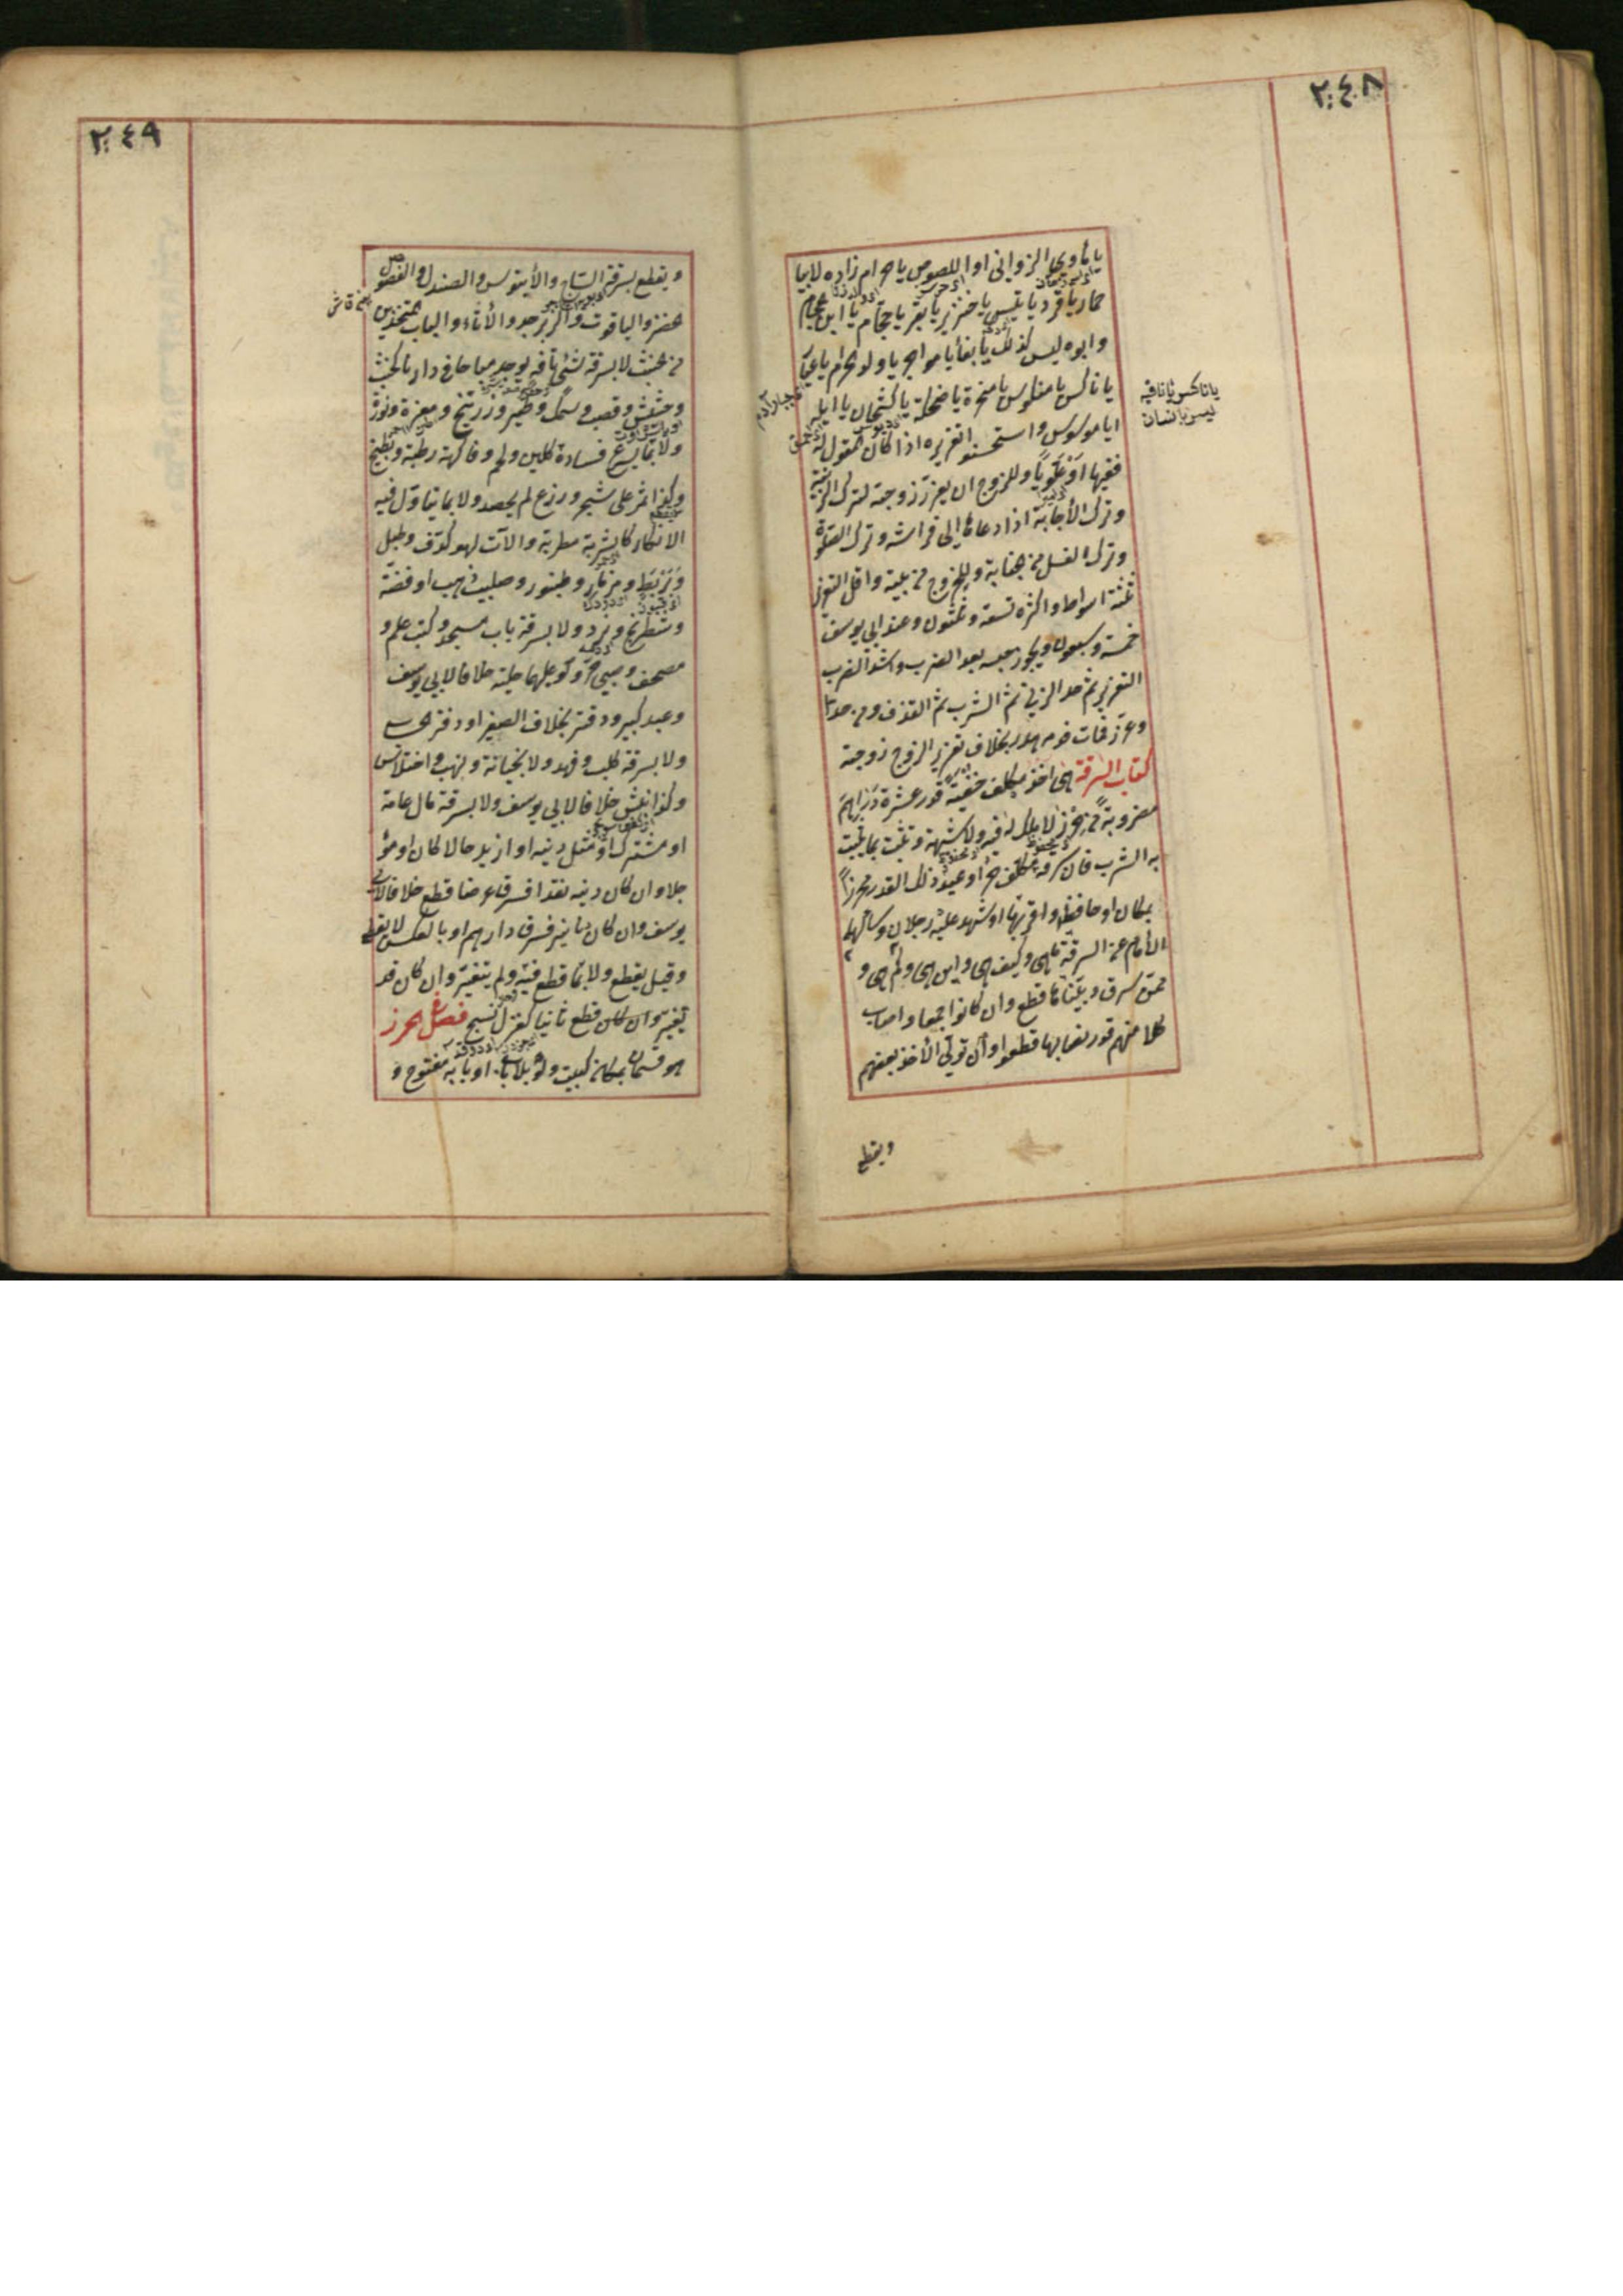 ٢٤٨
يا مأوى الزواني او اللصوص يا حرام زاده لا بيا
حمار يا قرد يا تيس يا خنزير يا بقر يا حجام يا ابن حجام
وابوه ليس كذلك يا بغا يا مواجر يا ولد الحرام يا عيار
يا ناكس يا منكوس يا سخرة يا ضحكة يا كشحان يا ابله
يا موسوس واستحسنوا تعزيره اذا كان المقول له
فقيها او علويا وللزوج ان يعزر زوجته لترك الزينة
وترك الأجابة اذا دعاها الى فراشه وترك الصلوة
وترك الغسل من جنابة وللخروج من بيته واقل التعزير
ثلثة اسواط واكثره تسعة وثلثون وعند ابي يوسف
خمسة وسبعون ويجوز حبسه بعد الضرب واشد الضرب
التعزير ثم حد الزنى ثم الشرب ثم القذف ومن حد
وعزر فمات فدمه هدر بخلاف تعزير الزوج زوجته
كتاب السرقة هي اخذ مكلف خفية قدر عشرة دراهم
مضروبة من حرز لا ملك له فيه ولا شبهة وتثبت بما يثبت
به الشرب فان سرق مكلف حر او عبد ذلك القدر محرزا
بمكان او حافظ واقر بها او شهد عليه رجلان وسألهما
الأمام عن السرقة ما هي وكيف هي واين هي وكم هي و
ممن سرق وبيناها قطع وان كانوا جمعا واصاب
كلا منهم قدر نصابها قطعوا وان تولى الأخذ بعضهم
يا ناكس
ليس بانسان
ويقطع
٢٤٩
ويقطع بسرقة الساج والأبنوس والصندل والفصوص
الخضر والياقوت والزبرجد والأناء والباب المتخذين
من خشب لا بسرقة شيء تافه يوجد مباحا في دارنا كخشب
وحشيش وقصب وسمك وطير وزرنيخ ومغرة ونورة
ولا بما يسرع فساده كلبن ولحم وفاكهة رطبة وبطيخ
وكذا ثمر على شجر وزرع لم يحصد ولا بما يتأول فيه
الانكار كاشربة مطربة وآلات لهو كدف وطبل
وبربط ومزمار وطنبور وصليب ذهب او فضة
وشطرنج ونرد ولا بسرقة باب مسجد وكتب علم و
مصحف وصبي حر ولو عليهما حلية خلافا لابي يوسف
وعبد كبير ودفتر بخلاف الصغير او دفتر الحساب
ولا بسرقة كلب وفهد ولا بخيانة ونهب واختلاس
وكذا نبش خلافا لابي يوسف ولا بسرقة مال عامة
او مشترك او مثل دينه او ازيد حالا كان او مؤ
جلا وان كان دينه نقدا فسرق عرضا قطع خلافا لابي
يوسف وان كان دنانير فسرق دراهم او بالعكس لا يقطع
وقيل يقطع ولا بما قطع فيه ولم يتغير وان كان قد
تغير قطع ثانيا كغزل نسج فصل الحرز
هو قسمان بمكان كبيت ولو بلا باب او بابه مفتوح و